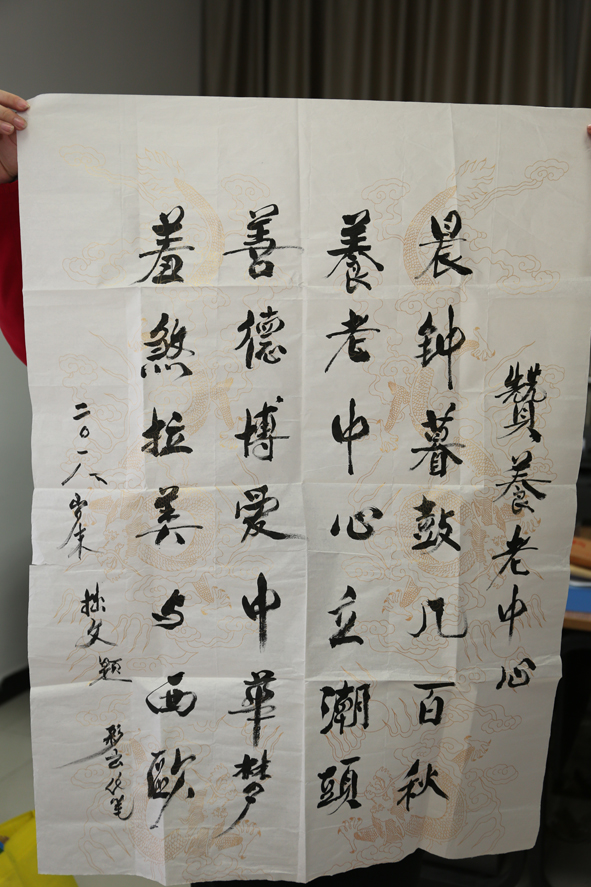 贊養老中心
晨钟暮鼓几百秋
養老中心立潮頭
善德博爱中華梦
羞煞拉美与西歐
二〇一八岁末
拙文题
彤云代笔